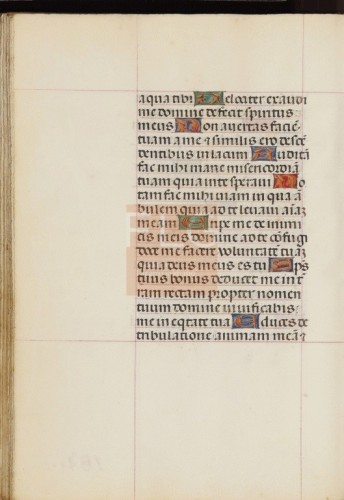 aqua tibi Velociter exaudi
me domine defecit spiritus
meus Non avertas faciē
tuam a me & similis ero descē
dentibus in lacum Auditā
fac mihi mane misericordiā
tuam quia in te speravi No
tam fac mihi viam in qua ā
bulem quia ad te levavi aīaȝ
meam Eripe me de inimi
cis meis domine ad te cōfugi
doce me facere volūtatē tuāȝ
quia deus meus es tu Sps
tuus bonus deducet me in t̄
ram rectam propter nomen
tuum domine vivificabis
me in eq̄tate tua Educes de
tribulatione animam meā &